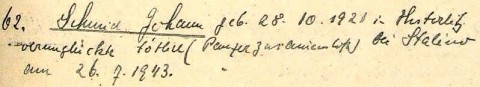 62. Schmid Johann geb. 28. 10. 1921 in Husterlitz
verunglückte tötlich (Panzerzusammenstoß) bei Stalino
am 26. 7. 1943.